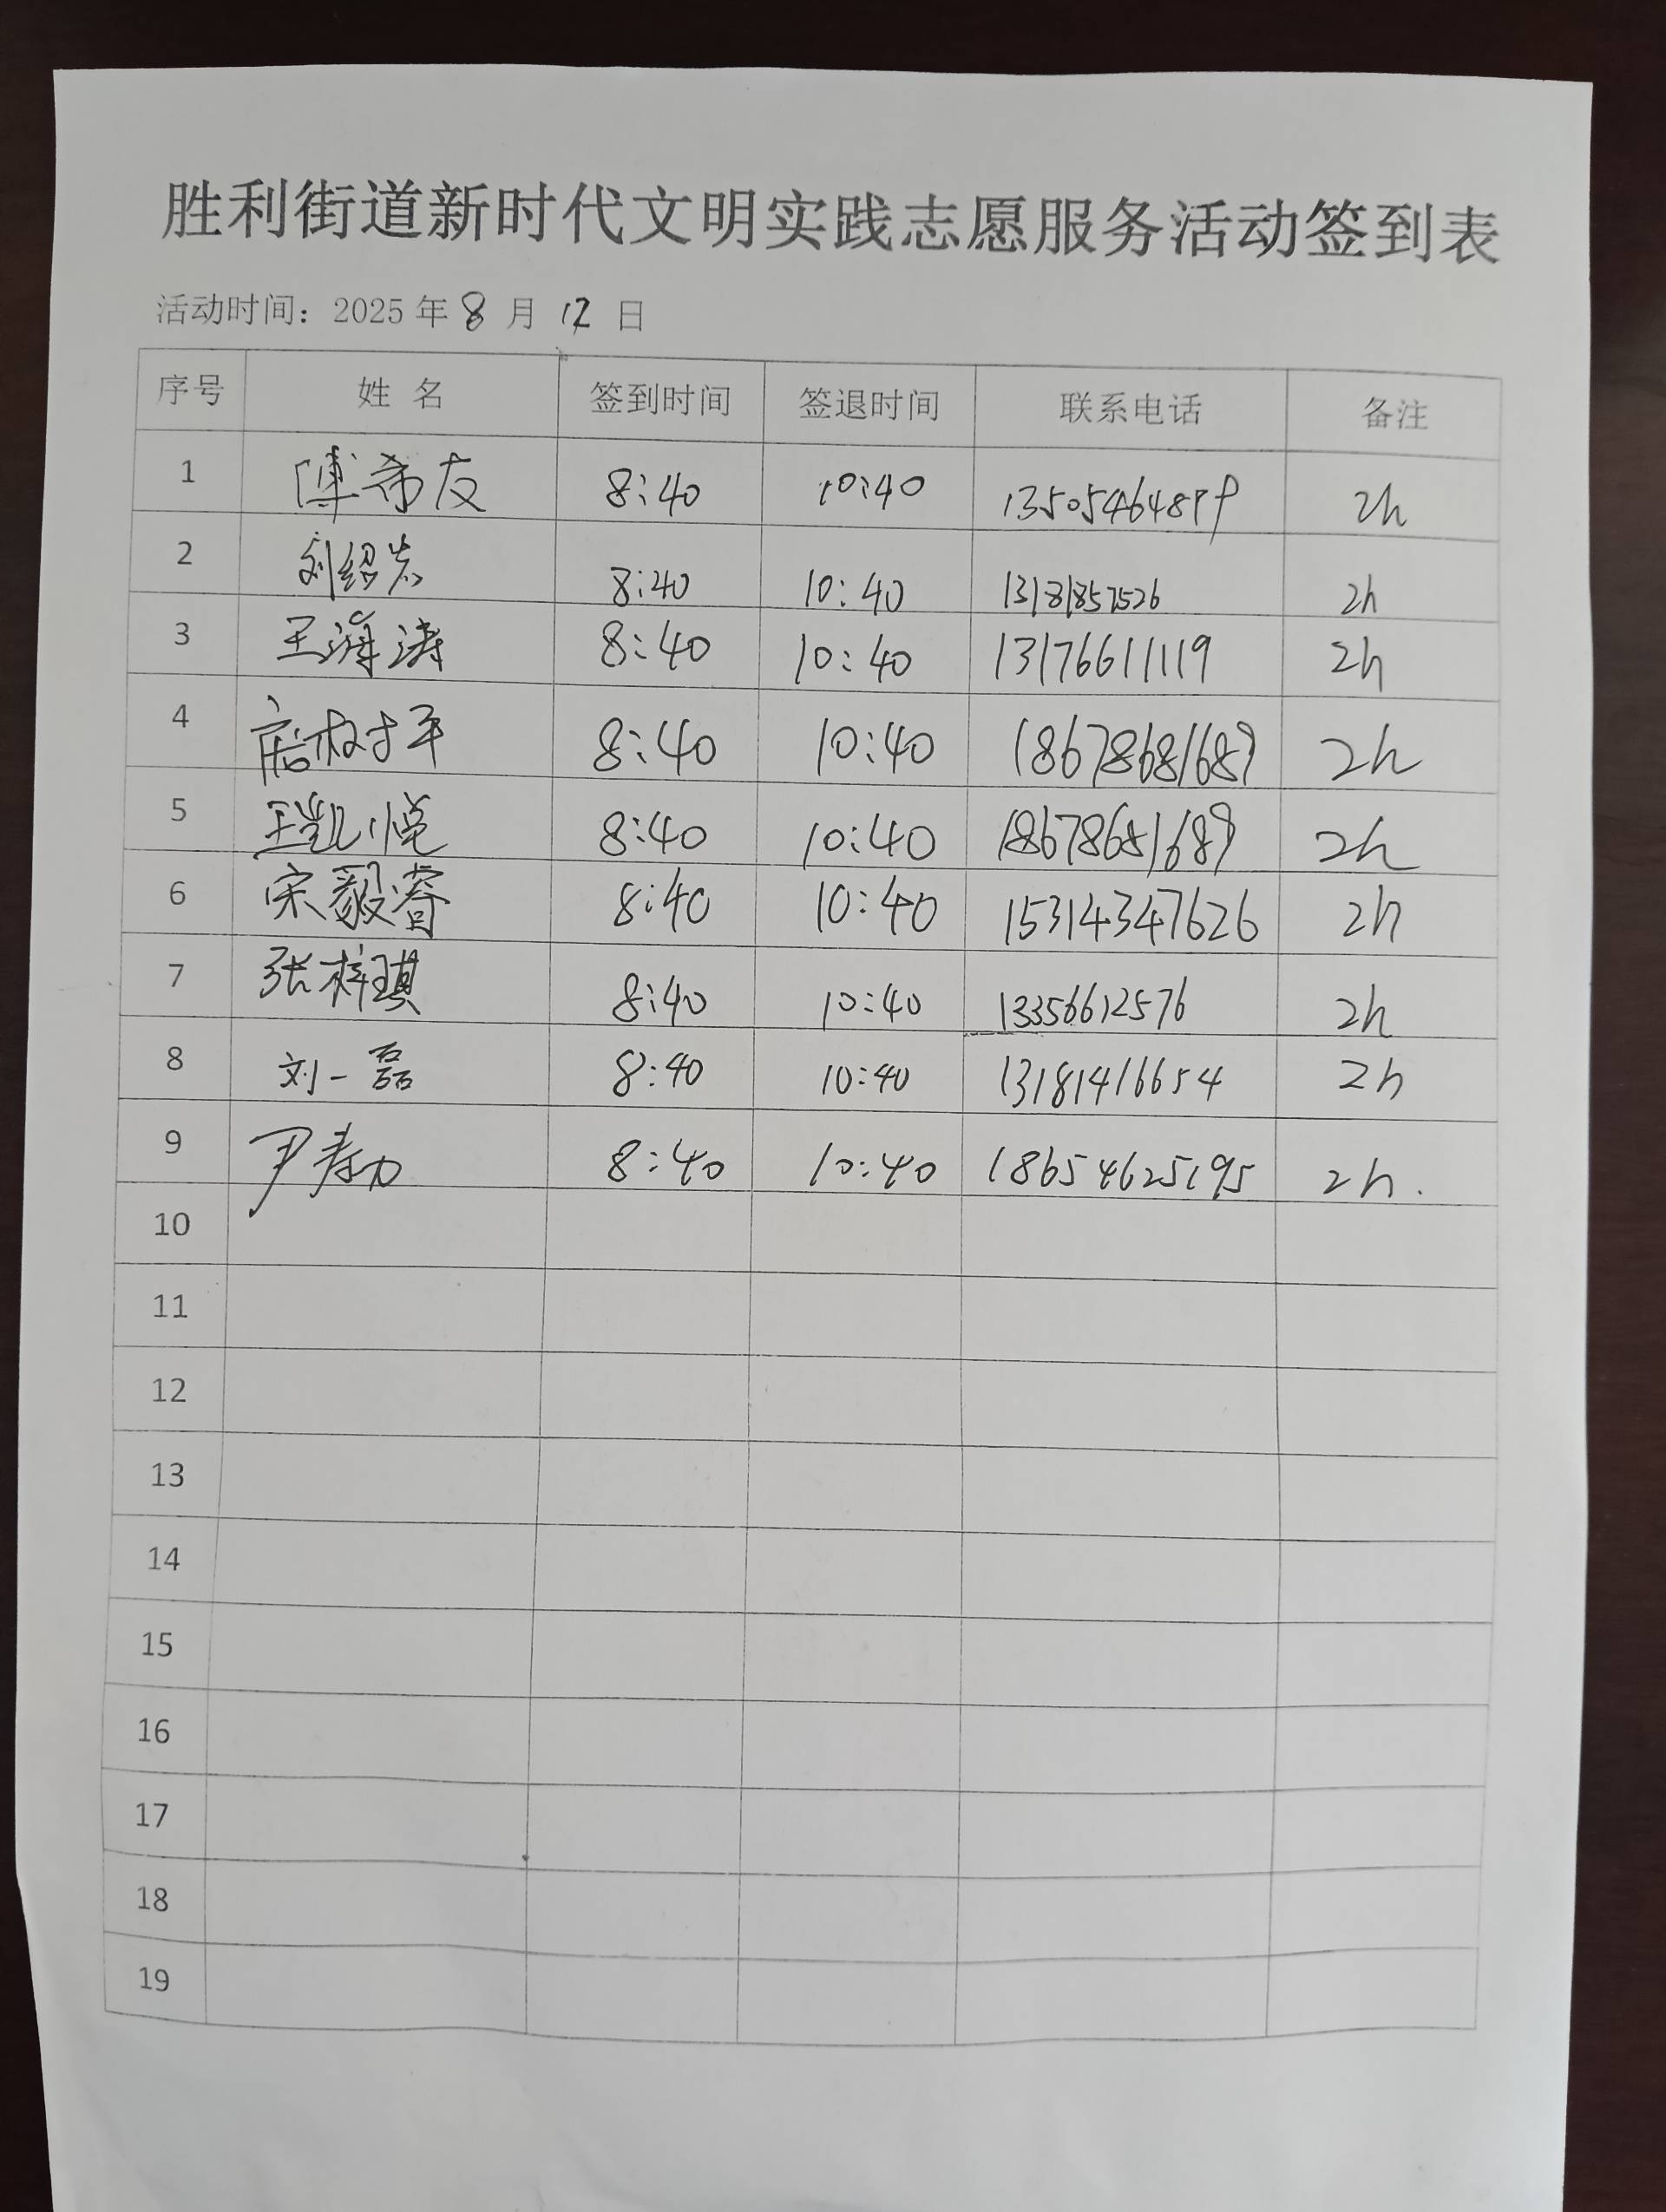 胜利街道新时代文明实践志愿服务活动签到表
活动时间：2025年8月12日
序号 姓名 签到时间 签退时间 联系电话 备注
1 傅希友 8:40 10:40 13505464899 2h
2 刘绍岩 8:40 10:40 13181857526 2h
3 王海涛 8:40 10:40 13176611119 2h
4 8:40 10:40 18678681689 2h
5 王凯悦 8:40 10:40 18678681689 2h
6 宋毅睿 8:40 10:40 15314347626 2h
7 张梓琪 8:40 10:40 13356612576 2h
8 刘一磊 8:40 10:40 13181416654 2h
9 8:40 10:40 18654625195 2h.
10
11
12
13
14
15
16
17
18
19